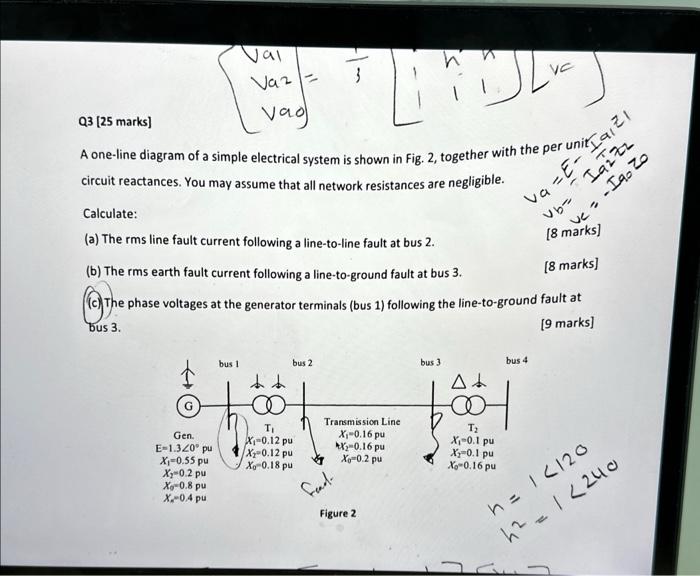 Va1
Va2 = 1/3
Va0
1 h h
1 1 1
Vc
Q3 [25 marks]
A one-line diagram of a simple electrical system is shown in Fig. 2, together with the per unit
circuit reactances. You may assume that all network resistances are negligible.
Va = E - Ia1Z1
Vb = - Ia2Z2
Vc = - Ia0Z0
Calculate:
(a) The rms line fault current following a line-to-line fault at bus 2.
[8 marks]
(b) The rms earth fault current following a line-to-ground fault at bus 3.
[8 marks]
(c) The phase voltages at the generator terminals (bus 1) following the line-to-ground fault at
bus 3.
[9 marks]
bus 1 bus 2 bus 3 bus 4
G
Gen.
E=1.3∠0° pu
X₁=0.55 pu
X₂=0.2 pu
X₀=0.8 pu
Xₙ=0.4 pu
T₁
X₁=0.12 pu
X₂=0.12 pu
X₀=0.18 pu
Transmission Line
X₁=0.16 pu
X₂=0.16 pu
X₀=0.2 pu
T₂
X₁=0.1 pu
X₂=0.1 pu
X₀=0.16 pu
h = 1<120
h² = 1<240
Figure 2